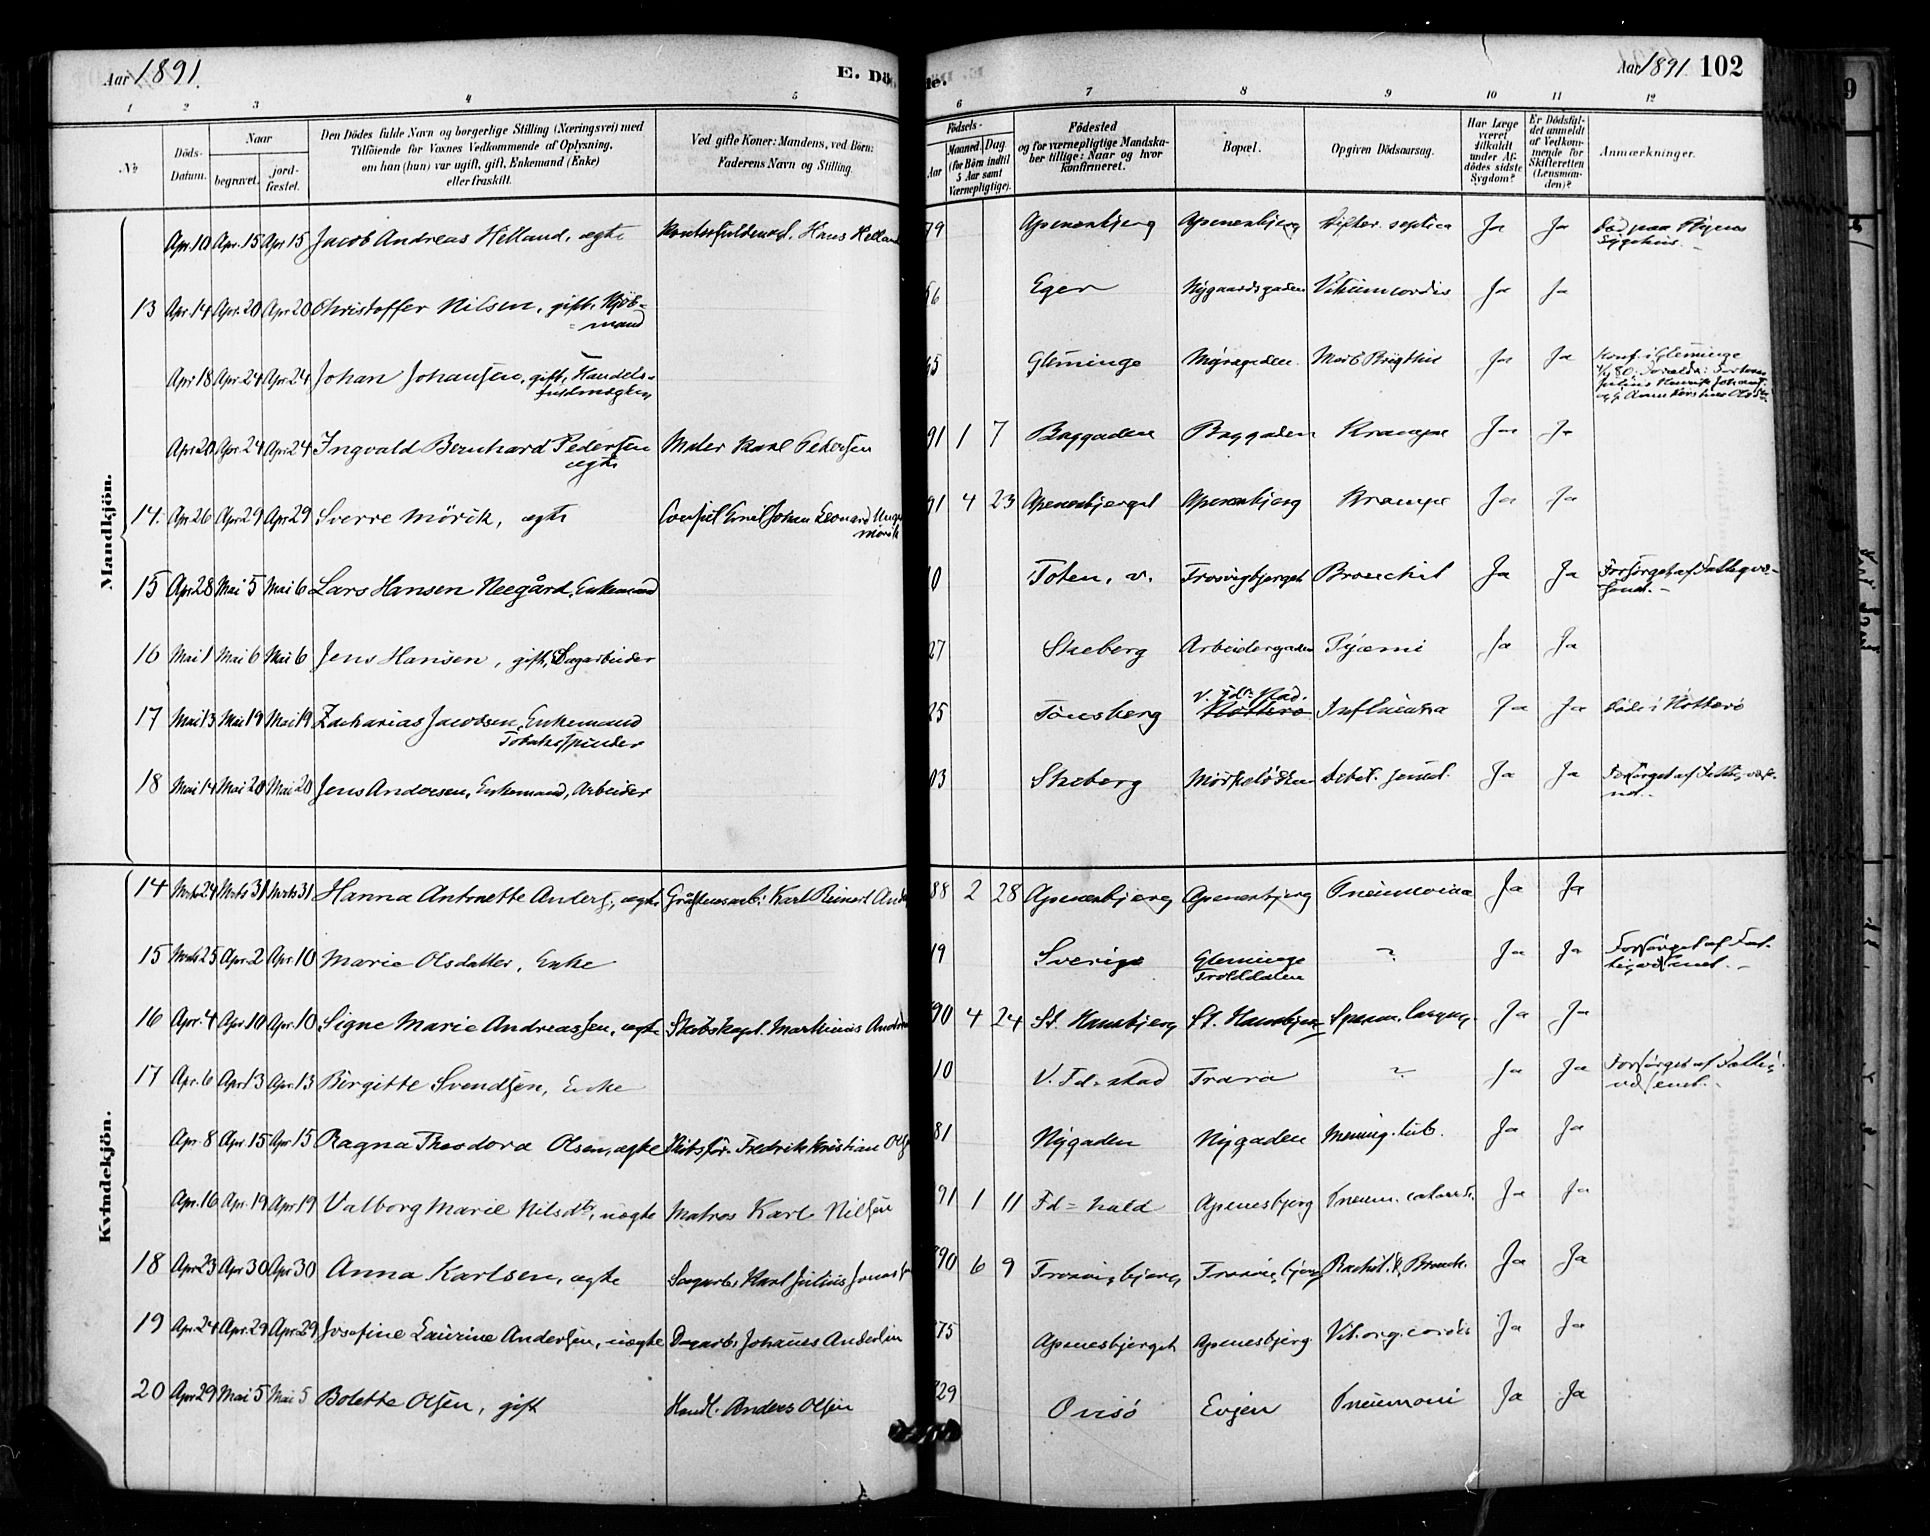 Aar 1891.
E. Dö
de.
Aar 1891. 102
1 2 3 4 5 6 7 8 9 10 11 12
No
Döds-Datum.
Naar
begravet.
jord-fæstet.
Den Dödes fulde Navn og borgerlige Stilling (Næringsvei) med
Tilföiende for Voxnes Vedkommende af Oplysning,
om han (hun) var ugift, gift, Enkemand (Enke)
eller fraskilt.
Ved gifte Koner: Mandens, ved Börn:
Faderens Navn og Stilling.
Födsels-
Aar
Maaned. Dag
(for Börn indtil
5 Aar samt
Værnepligtige).
Födested
og for værnepligtige Mandska-
ber tillige: Naar og hvor
konfirmeret.
Bopæl.
Opgiven Dödsaarsag.
Har Læge
været
tilkaldt
under Af-
dödes sidste
Sygdom?
Er Dödsfal-
det anmeldt
af Vedkom-
mende for
Skifteretten
(Lensman-
den)?
Anmærkninger.
Mandkjön.
Apr. 10 Apr. 15 Apr 15 Jacob Andreas Helland, ægte Hans Helland 79 Apenesbjerg Apenesbjerg Difther. septica Ja Ja Död paa Byens
Sygehus.
13 Apr 14 Apr. 20 Apr 20 Christoffer Nilsen, gift, Kjöb-
mand 6 Eger Nygaardsgaden Vitium cordis Ja Ja
Apr 18 Apr. 24 Apr 24 Johan Johansen, gift, Handels-
fuldmægtig 5 Glemminge Myragaden Morb. Brigthii Ja Ja Konf. i Glemminge
Apr 20 Apr. 24 Apr 24 Ingvald Bernhard Pedersen
ægte Maler Karl Pedersen 91 1 7 Baggaden Baggaden Krampe Ja Ja
14. Apr 26 Apr 29 Apr 29 Sverre Mörik, ægte Consul Emil Johan Leonard Unger
Mörik 91 4 23 Apenesbjerget Apenesbjerg Krampe Ja Ja
15 Apr 28 Mai 5 Mai 6 Lars Hansen Neegård, Enkemand 10 Toten, v. Trosvigbjerget Bronchit Ja Ja Forsörget af Fattigvæ-
senet.
16 Mai 1 Mai 6 Mai 6 Jens Hansen, gift, Dagarbeider 27 Skeberg Arbeidergaden Pyæmi Ja Ja
17 Mai 13 Mai 19 Mai 19 Zacharias Jacobsen, Enkemand
Tobakspinder 25 Tönsberg V. Fd. stad. Influenza Ja Ja Döde i Kotterö
18 Mai 14 Mai 20 Mai 20 Jens Andersen, Enkemand, Arbeider 03 Skeberg Debil. senil. Ja Ja Forsörget af Fattigvæse-
net.
Kvindekjön.
14 Marts 24 Marts 31 Marts 31 Hanna Antonette Anders., ægte Karl Reinert Ande 88 2 28 Apenesbjerg Apenesbjerg Pneumonia Ja Ja
15 Marts 25 Apr. 2 Apr. 10 Marie Olsdatter, Enke 19 Sverige Glemminge
Trolddalen ? Ja Ja Forsörget af Fat-
tigvæsenet.
16 Apr. 4 Apr 10 Apr. 10 Signe Marie Andreassen, ægte Skibskapt. Marthinius Andrea 90 4 24 St. Hansbjerg St. Hansbjerg Ja Ja
17 Apr. 6 Apr 13 Apr. 13 Birgitte Svendsen, Enke 10 V. Fd=stad Trara ? Ja Ja Forsörget af Fattig-
væsenet.
Apr. 8 Apr 15 Apr 15 Ragna Theodora Olsen, ægte Skibsför. Fredrik Kristian Ols 81 Nygaden Nygaden Mening. tub. Ja Ja
Apr. 16 Apr. 19 Apr 19 Valborg Marie Nilsdtr, uægte Matros Karl Nilsen 91 1 11 Fd=hald Apenesbjerg Pneum. catarrh. Ja Ja
18 Apr 23 Apr 30 Apr 30 Anna Karlsen, ægte Karl Julius Jonas 90 6 9 Trosvigbjerg Trosvigbjerg Rachit. & Bronch. Ja Ja
19 Apr. 24 Apr. 29 Apr. 29 Josefine Laurine Andersen, uægte Dagarb. Johanes Andersen 75 Apenesbjerget Apenesbjerg. Vit. org. cordis Ja Ja
20 Apr 29 Mai 5 Mai 5 Bolette Olsen, gift Handl. Anders Olsen 29 Onsö Evjen Pneumoni Ja Ja